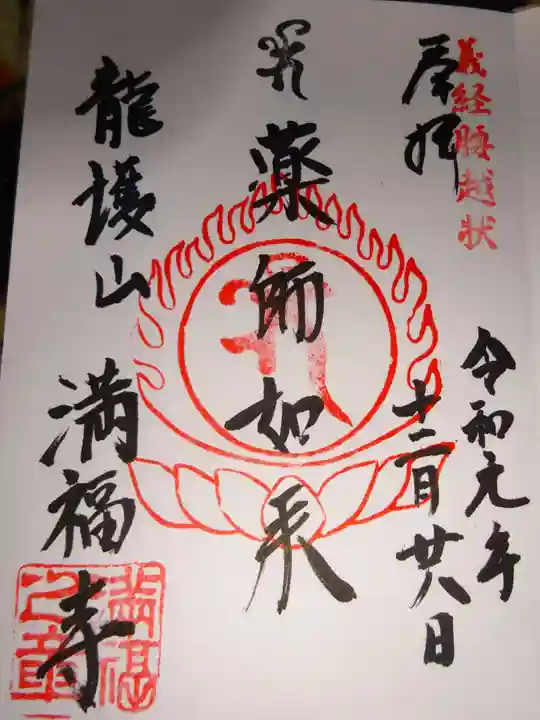 義経腰越状
奉拝
令和元年
十二月廿八日
薬師如来
龍護山 満福寺
満福
之章